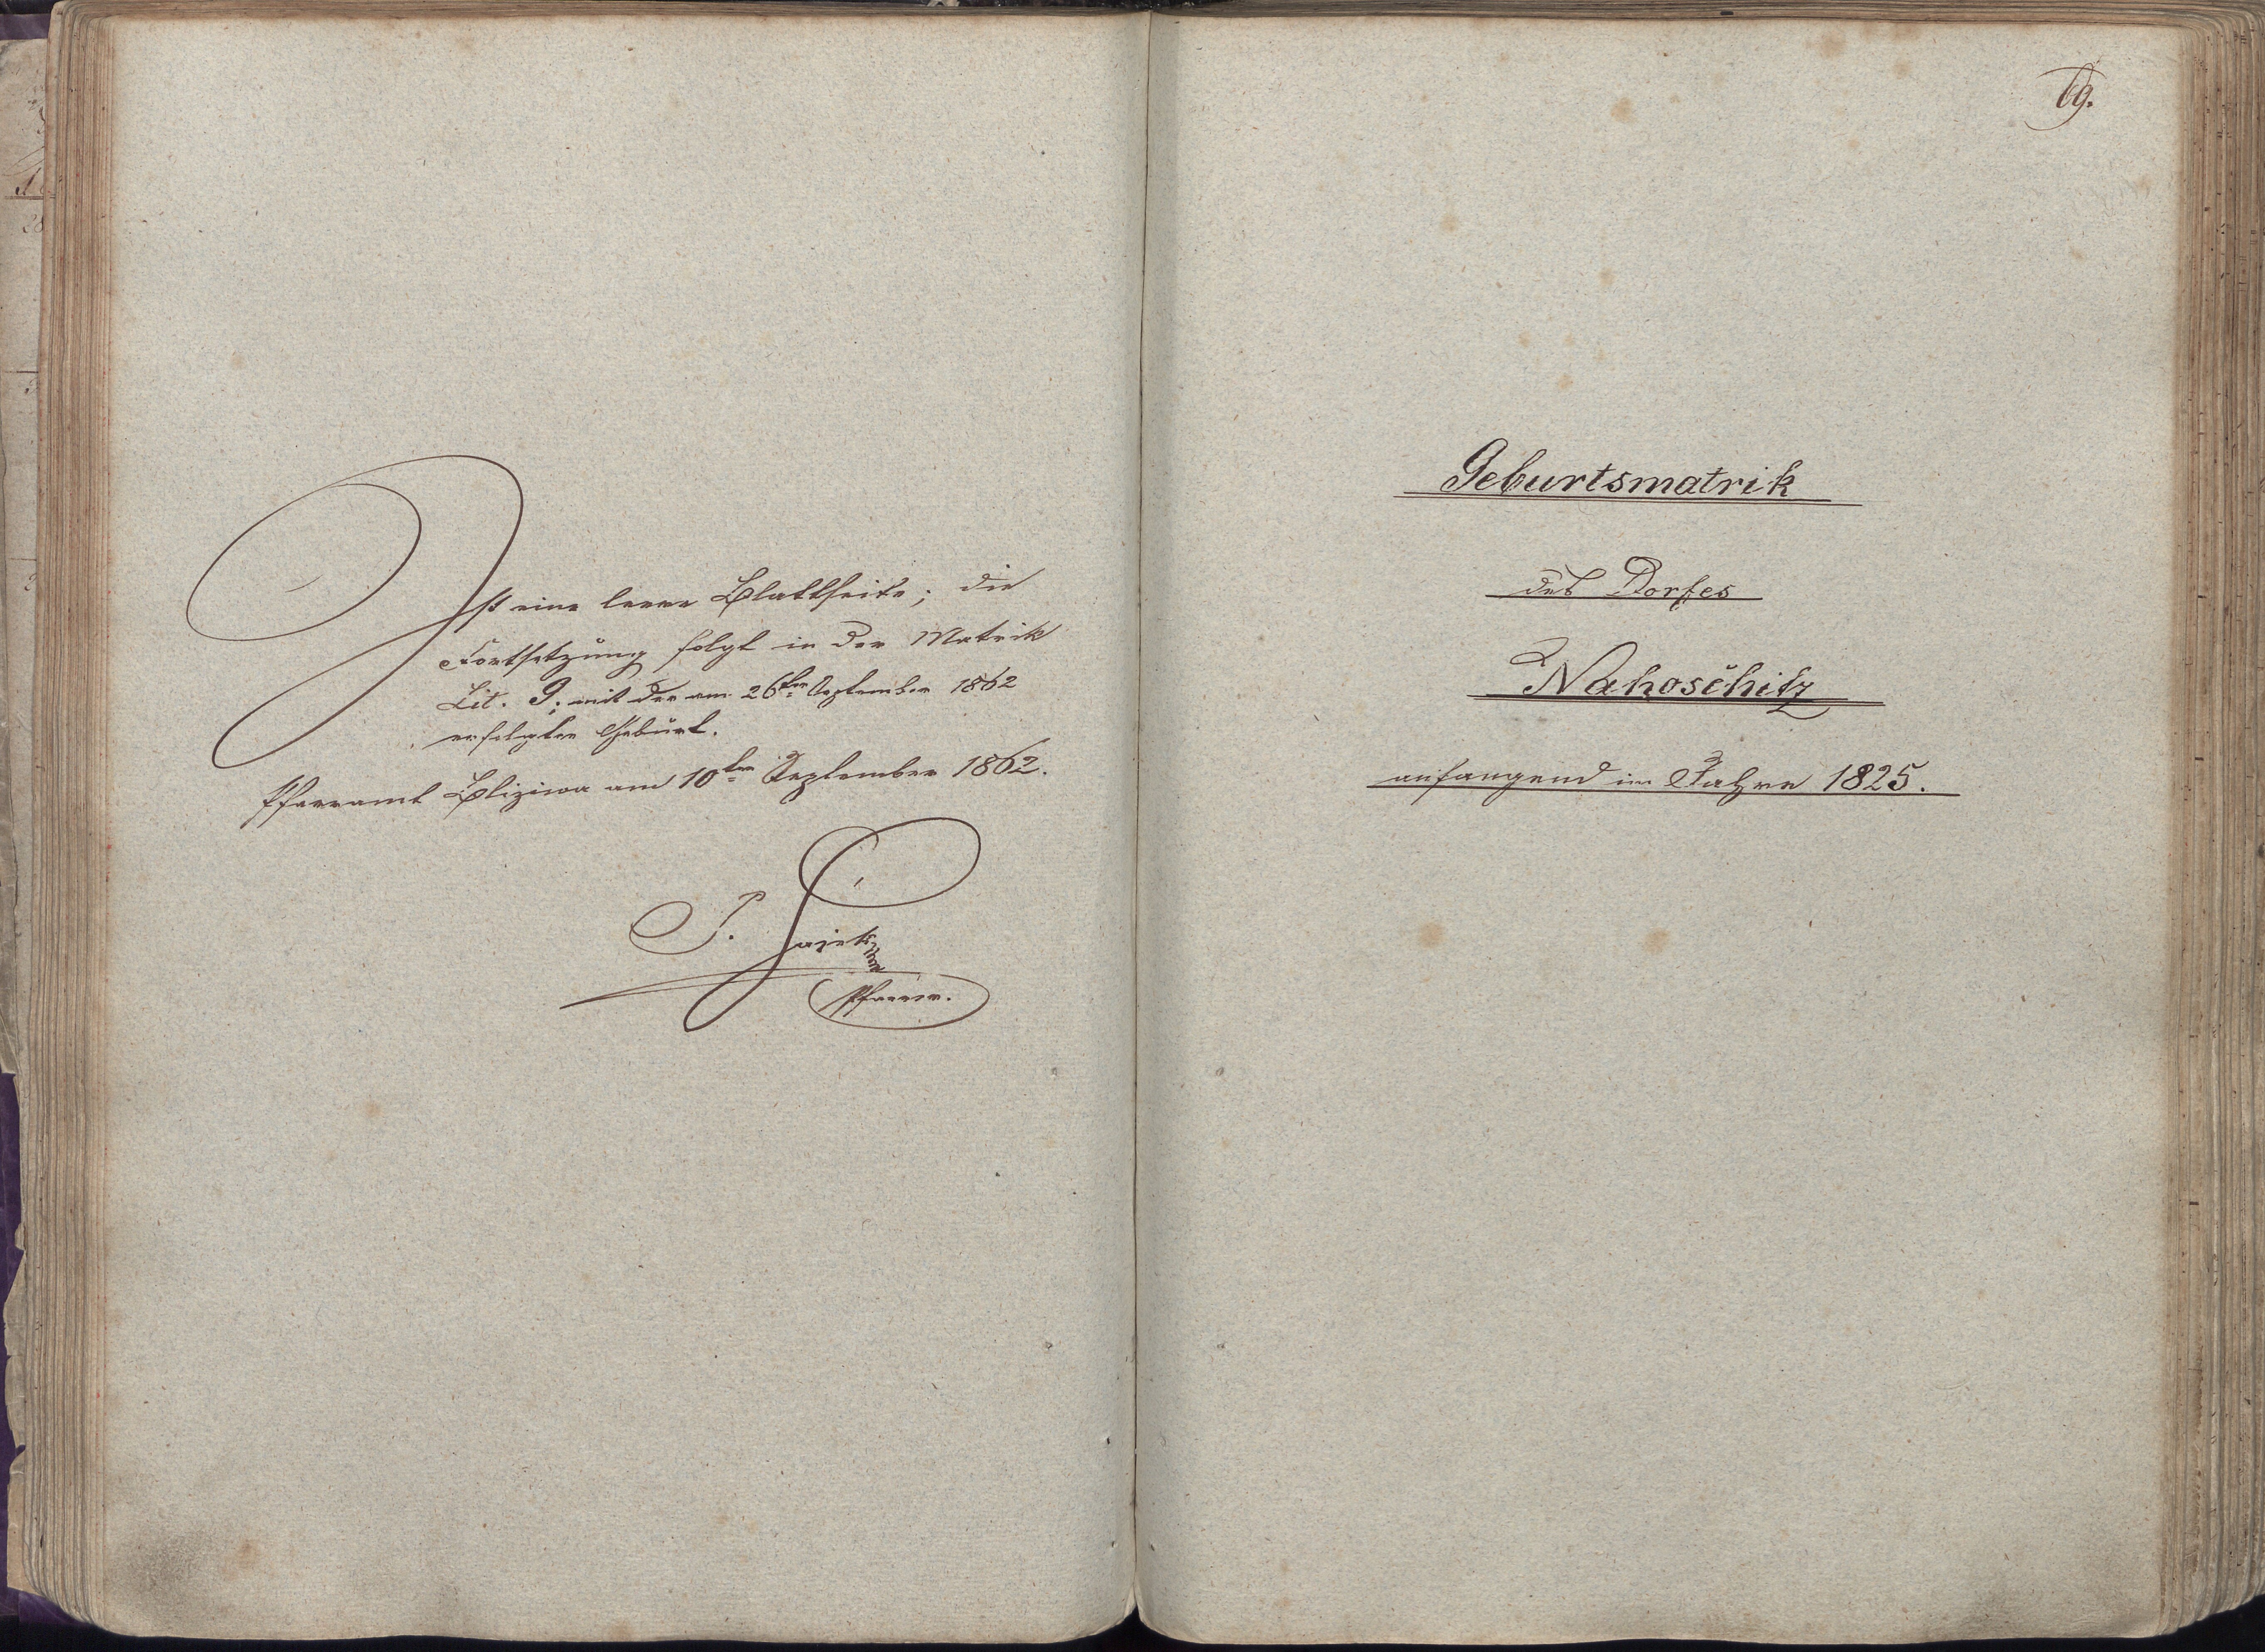 Ist eine leere Blattseite; die
Fortsetzung folgt in der Matrik
Lit. G; mit der am 26ten September 1862
erfolgten Geburt.
Pfarramt Bliziwa am 10ten September 1862.
P. Hajek
Pfarrer.
69.
Geburtsmatrik
des Dorfes
Nahoschitz
anfangend im Jahre 1825.